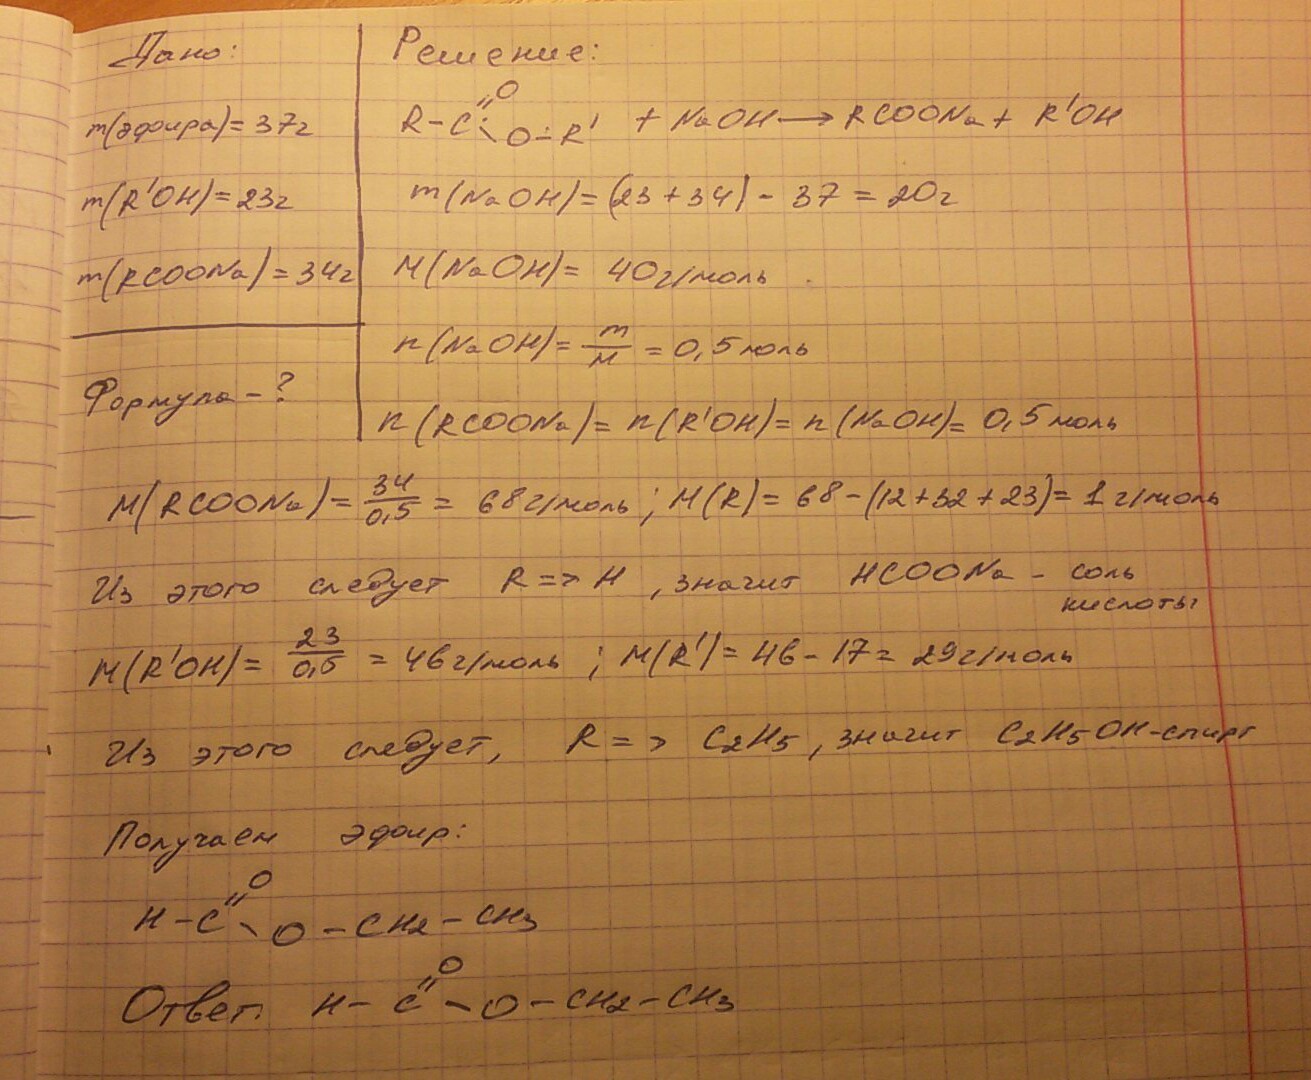 Дано:
m(эфира)=37г
m(R'OH)=23г
m(RCOONa)=34г
Формула-?
Решение:
R-C=O-O-R' + NaOH → RCOONa + R'OH
m(NaOH)=(23+34)-37=20г
M(NaOH)= 40г/моль
n(NaOH)= m/M = 0,5моль
n(RCOONa)= n(R'OH)= n(NaOH)= 0,5моль
M(RCOONa)= 34/0,5 = 68г/моль; M(R)= 68-(12+32+23)= 1г/моль
Из этого следует R=>H, значит HCOONa - соль
кислоты
M(R'OH)= 23/0,5 = 46г/моль; M(R')= 46-17= 29г/моль
Из этого следует, R=> C2H5, значит C2H5OH-спирт
Получаем эфир:
H-C=O-O-CH2-CH3
Ответ. H-C=O-O-CH2-CH3